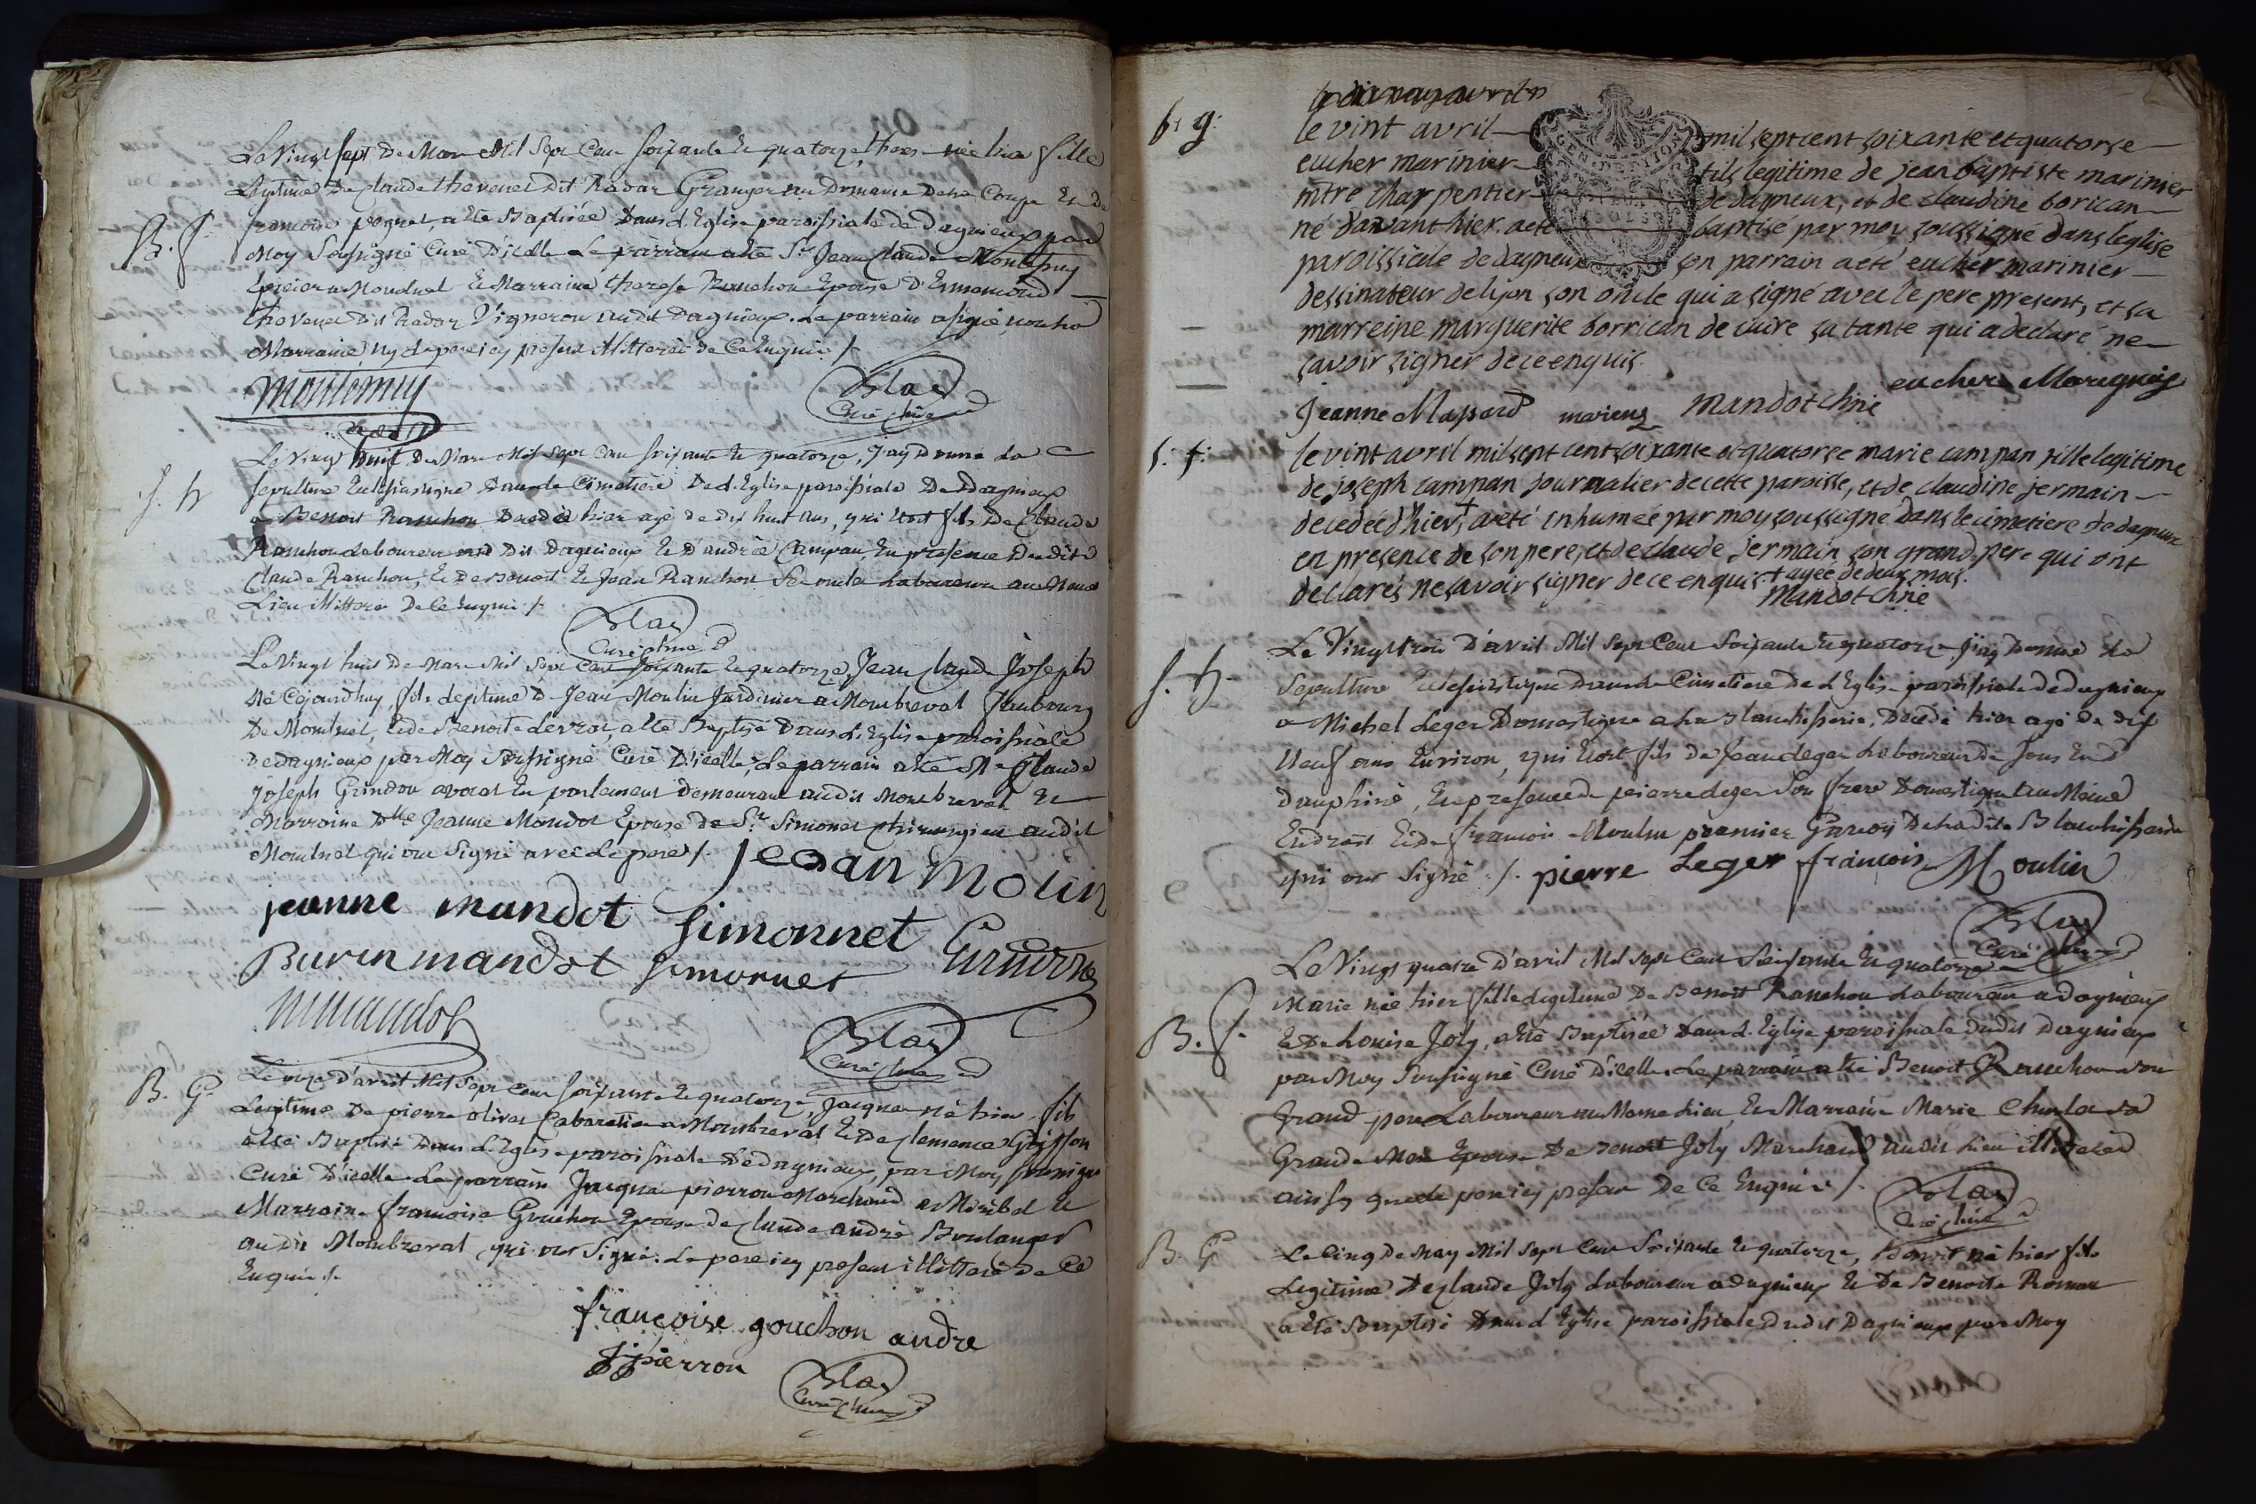 B. f.
Le Vingt sept De Mars Mil Sept Cent soixante et quatorze, Therese née hier fille
Legitime De Claude thevenet dit Radar Granger au Domaine De la Coupe Et De
francoise peynet, a été Baptisée Dans l'Eglise paroissiale de dagnieux par
Moy Soussigné Curé D'icelle Le parrain a été Sr Jean Claude Montessuy
Epicier a Montluel Et Marraine therese Ranchon Epouse D'Ennemond
thevenet Dit Radar Vigneron audit dagnieux. Le parrain a signé non la
Marraine, ny le pere icy present illitterés de Ce Enquis /.
Montessuy
Blas
Curé
S. h
Le Vingt huit De Mars Mil Sept Cent soixante Et quatorze, j'ay Donné La
sepulture Ecclésiastique Dans le Cimetiere De l'Eglise paroissiale De Dagnieux
a Benoit Ranchon Decedé hier agé de dix huit ans, qui Etoit fils De Claude
Ranchon Laboureur au Dit Dagnieux Et D'andrée Campan, En presence Dudit
Claude Ranchon, Et De Benoit Et Jean Ranchon Ses oncles Laboureurs au Meme
Lieu illitterés De Ce Enquis /.
Blas
Curé
Le Vingt huit De Mars Mil Sept Cent soixante Et quatorze, Jean Claude Joseph
Né Cejourdhuy, fils Legitime De Jean Moulin Jardinier a Montbreval faubourg
De Montluel, Et de Benoite Levrat, a été Baptisé Dans L'Eglise paroissiale
De dagnieux par Moy Soussigné Curé D'icelle, Le parrain a été Me Claude
Joseph Girindon avocat En parlement Demeurant audit Montbreval Et
Marraine Dlle Jeanne Mandot Epouse de Sr Simonet chirurgien audit
Montluel qui ont Signé avec Le pere /.
jean Molin
jeanne mandot Simonnet
Burin mandot Simonnet
mmandot
Blas
Curé
B. G.
Le onze D'avril Mil Sept Cent soixante Et quatorze, Jacque né hier fils
Legitime De pierre olivet Cabaretier a Montbreval Et De Clemence Griffon
a été Baptisé Dans L'Eglise paroissiale De dagnieux, par Moy Soussigné
Curé D'icelle Le parrain Jacque pierron Marchand a Miribel Et
Marraine francoise Gouchon Epouse de Claude andré Boulanger
au dit Montbreval qui ont Signé. Le pere icy present illitteré de Ce
Enquis /.
francoise gouchon andre
J pierron
Blas
Curé
b. g.
le dix neuf avril
le vint avril mil sept cent soixante et quatorse
eucher marinier fils legitime de jean baptiste marinier
mtre charpentier de dagneux, et de claudine borican
né davant hier. a eté baptisé par moy soussigné dans leglise
paroissiale de dagneux son parrain a eté eucher marinier
dessinateur de lyon son oncle qui a signé avec le pere present, et sa
marreine marguerite borrican de cuire sa tante qui a declaré ne
savoir signer de ce enquis.
eucher
Jeanne Massard mandot
s. f.
le vint avril mil sept cent soixante et quatorse marie campan fille legitime
de joseph campan journalier de cette paroisse, et de claudine jermain
decedée d'hier, + a eté inhumée par moy soussigné dans le cimetiere de dagneux
en presence de son pere, et de claude jermain son grand pere qui ont
declarés ne savoir signer de ce enquis. + agée de deux mois.
mandot
S. h.
Le Vingt trois D'avril Mil Sept Cent Soixante Et quatorze j'ay Donné La
Sepulture Ecclesiastique Dans le Cimetiere De L'Eglise paroissiale De dagnieux
a Michel Leger Domestique a La Blanchisserie, Decedé hier agé De dix
Neuf ans Environ, qui Etoit fils De Jean Leger Laboureur De Jons En
dauphiné, En presence de pierre Leger Son frere Domestique au Meme
Endroit Et De francois Moulin premier Garcon De La dite Blanchisserie
qui ont Signé /. pierre Leger francois Moulin
Blas
Curé
B. f.
Le Vingt quatre D'avril Mil Sept Cent Soixante Et quatorze
Marie née hier fille Legitime De Benoit Ranchon Laboureur a Dagnieux
Et De Louise Joly, a été Baptisée Dans L'Eglise paroissiale Dudit Dagnieux
par Moy Soussigné Curé D'icelle. Le parrain a été Benoit Ranchon Son
Grand pere Laboureur au Meme Lieu, Et Marraine Marie Sa
Grande Mere Epouse De Benoit Joly Marchand audit Lieu illitterés
ainsy que Le pere icy present De Ce Enquis /.
Blas
Curé
B. G
Le Cinq De May Mil Sept Cent Soixante Et quatorze, Benoit né hier fils
Legitime De Claude Joly Laboureur a dagnieux Et De Benoite Roman
a été Baptisé Dans L'Eglise paroissiale Dudit Dagnieux par Moy